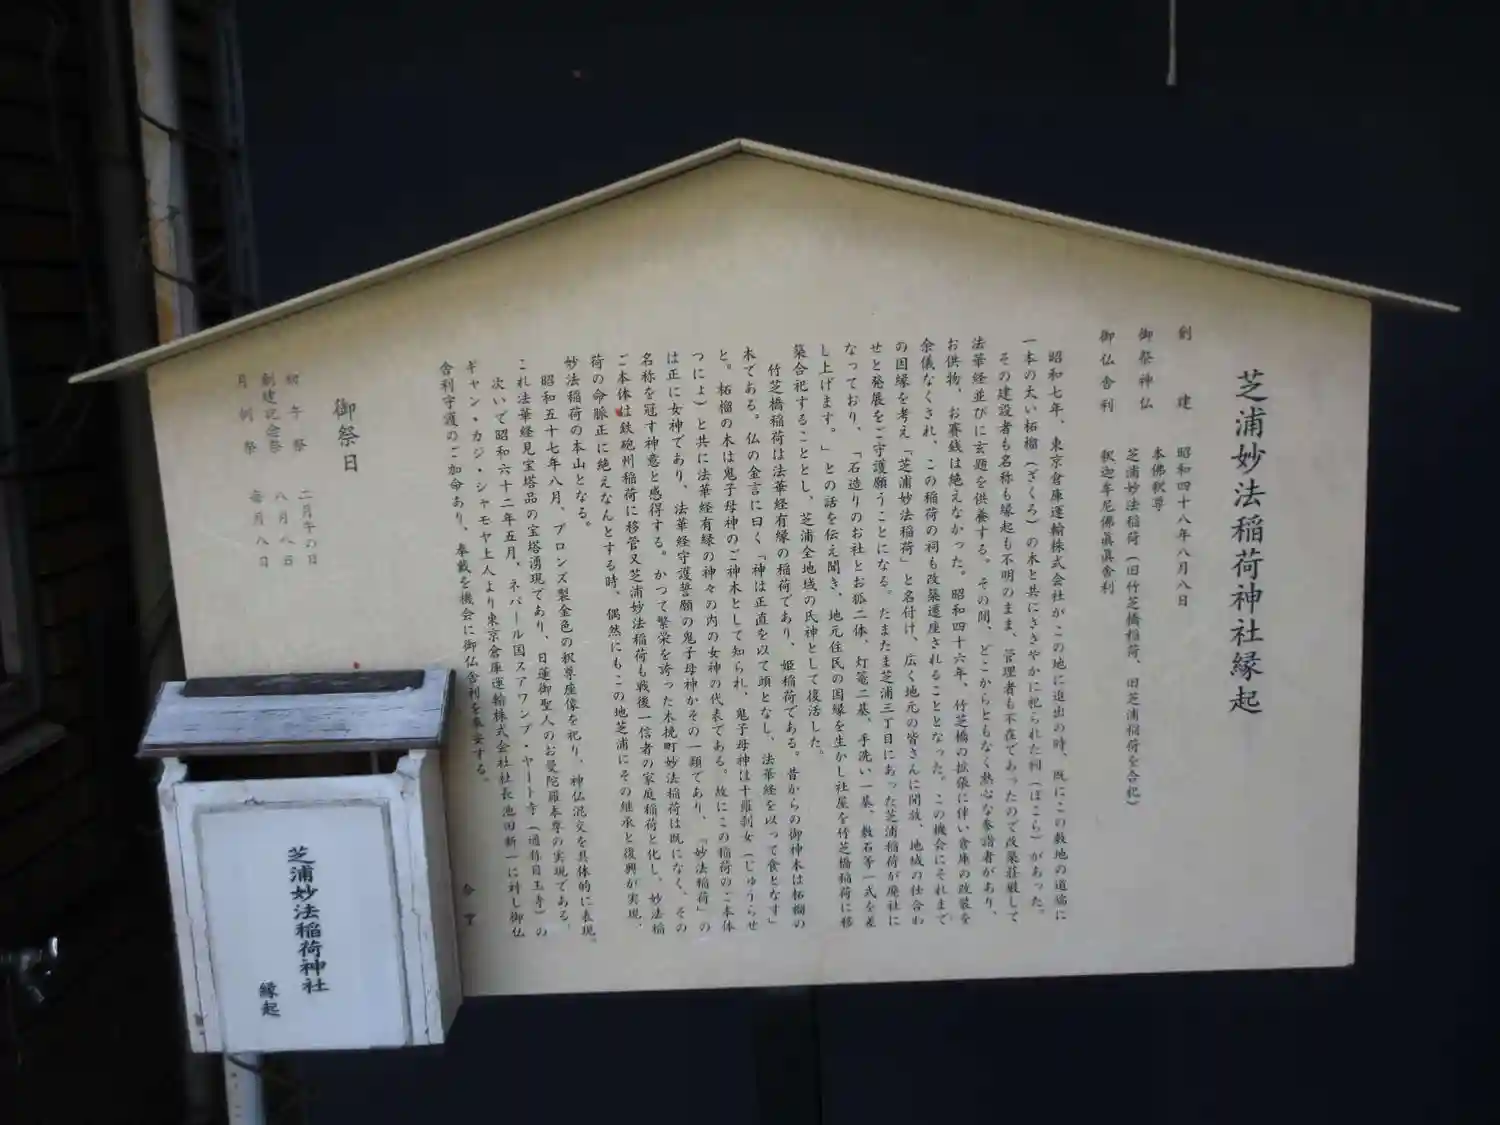 芝浦妙法稲荷神社縁起
創建 昭和四十八年八月八日
御祭神仏 本佛釈尊
芝浦妙法稲荷(旧竹芝橋稲荷、旧芝浦稲荷を合祀)
御仏舎利 釈迦牟尼佛眞眞舎利
昭和七年、東京倉庫運輸株式会社がこの地に進出の時、既にこの敷地の道端に
一本の太い柘榴(ざくろ)の木と共にささやかに祀られた祠(ほこら)があった。
その建設者も名称も縁起も不明のまま、管理者も不在であったので改築荘厳して
法華経並びに玄題を供養する。その間、どこからともなく熱心な参詣者があり、
お供物、お賽銭は絶えなかった。昭和四十六年、竹芝橋の拡張に伴い倉庫の改装を
余儀なくされ、この稲荷の祠も改築遷座されることとなった。この機会にそれまで
の因縁を考え「芝浦妙法稲荷」と名付け、広く地元の皆さんに開放、地域の仕合わ
せと発展をご守護願うことになる。たまたま芝浦三丁目にあった芝浦稲荷が廃社に
なっており、「石造りのお社とお狐二体、灯篭二基、手洗い一基、敷石等一式を差
し上げます。」との話を伝え聞き、地元住民の因縁を生かし社屋を竹芝橋稲荷に移
築合祀することとし、芝浦全地域の氏神として復活した。
竹芝橋稲荷は法華経有縁の稲荷であり、姫稲荷である。昔からの御神木は柘榴の
木である。仏の金言に曰く「神は正直を以て頭となし、法華経を以って食となす」
と。柘榴の木は鬼子母神のご神木として知られ、鬼子母神は十羅刹女(じゅうらせ
つにょ)と共に法華経有縁の神々の内の女神の代表である。故にこの稲荷のご本体
は正に女神であり、法華経守護誓願の鬼子母神かその一類であり、「妙法稲荷」の
名称を冠す神意と感得する。かつて繁栄を誇った木挽町妙法稲荷は既になく、その
ご本体は鉄砲州稲荷に移管又芝浦妙法稲荷も戦後一信者の家庭稲荷と化し、妙法稲
荷の命脈正に絶えなんとする時、偶然にもこの地芝浦にその継承と復興が実現、
妙法稲荷の本山となる。
昭和五十七年八月、ブロンズ製金色の釈尊座像を祀り、神仏混交を具体的に表現。
これ法華経見宝塔品の宝塔湧現であり、日蓮御聖人のお曼陀羅本尊の実現である。
次いで昭和六十二年五月、ネパール国スアワンブ・ヤート寺(通称目玉寺)の
ギャン・カジ・シャモヤ上人より東京倉庫運輸株式会社社長池田新一に対し御仏
舎利守護のご加命あり、奉載を機会に御仏舎利を奉安する。
合掌
御祭日
初午祭 二月午の日
創建記念祭 八月八日
月例祭 毎月八日
芝浦妙法稲荷神社
縁起